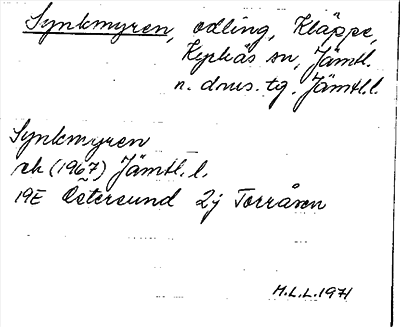 Synkmyren, odling, Kläppe,
Kyrkås sn, Jämtl.
n. dnes. tg. Jämtl.l.
Synkmyren
ek (1967) Jämtl. l.
19E Östersund 2j Torråsen
H.L.L. 1971